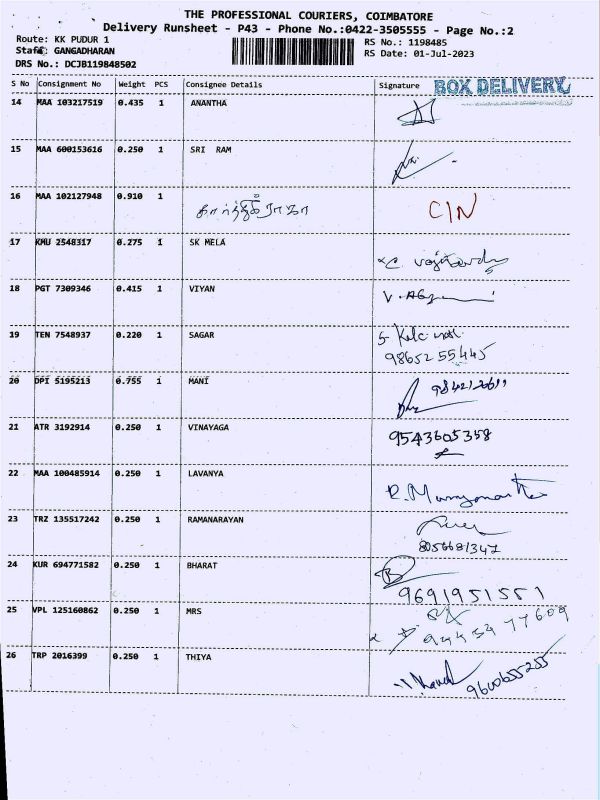 THE PROFESSIONAL COURIERS, COIMBATORE
Delivery Runsheet - P43 - Phone No.:0422-3505555 - Page No.:2
Route: KK PUDUR 1 RS No.: 1198485
Staff: GANGADHARAN RS Date: 01-Jul-2023
DRS No.: DCJB119848502
S No Consignment No Weight PCS Consignee Details Signature BOX DELIVERY
14 MAA 103217519 0.435 1 ANANTHA
15 MAA 600153616 0.250 1 SRI RAM
16 MAA 102127948 0.910 1 கார்த்திக் ராஜா CIN
17 KMU 2548317 0.275 1 SK MELA
18 PGT 7309346 0.415 1 VIYAN
19 TEN 7548937 0.220 1 SAGAR
9865255445
20 DPI 5195213 0.755 1 MANI
21 ATR 3192914 0.250 1 VINAYAGA 9543605358
22 MAA 100485914 0.250 1 LAVANYA
23 TRZ 135517242 0.250 1 RAMANARAYAN
8056681347
24 KUR 694771582 0.250 1 BHARAT
9691951551
25 VPL 125160862 0.250 1 MRS
9445477609
26 TRP 2016399 0.250 1 THIYA
9600655255